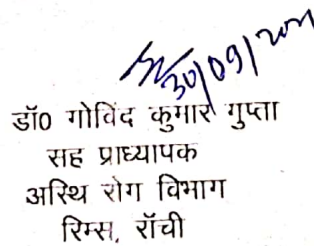 30/09/2021
डॉ0 गोविंद कुमार गुप्ता
सह प्राध्यापक
अस्थि रोग विभाग
रिम्स, राँची